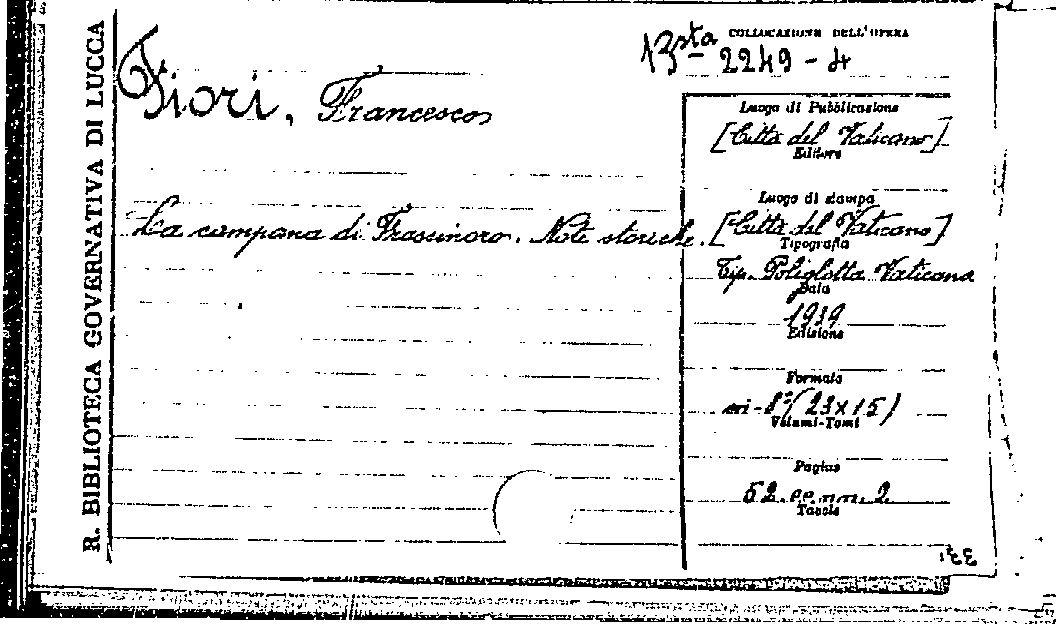 R. BIBLIOTECA GOVERNATIVA DI LUCCA
COLLOCAZIONE DELL'OPERA
2249-4
Fiori, Francesco
La campana di Frassinoro. Note storiche.
Luogo di Pubblicazione
[Città del Vaticano]
Editore
Luogo di stampa
[Città del Vaticano]
Tipografia
Tip. Poliglotta Vaticana
Data
1939
Edizione
Formato
in-8º (23x15)
Volumi-Tomi
Pagine
52. pp. nn. 2
Tavole